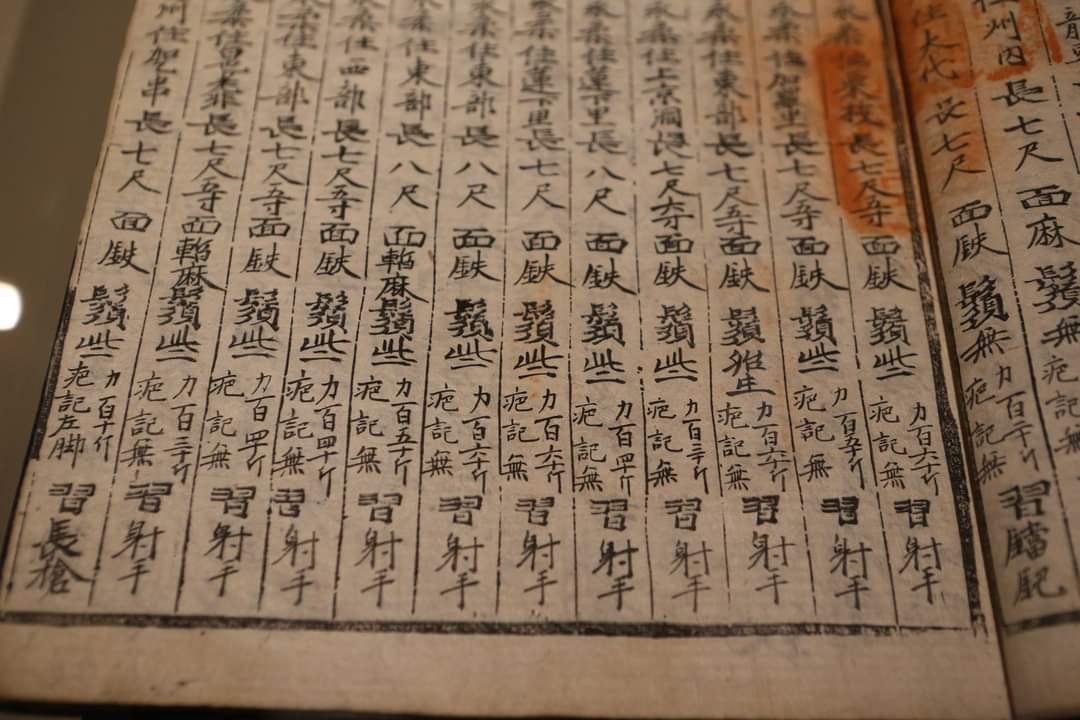 州内長七尺面麻鬚無疤記無
住大代長七尺面鉄鬚無力百二十斤疤記無習
永柔住東校長七尺五寸面鉄鬚些力百六十斤疤記無習射手
永柔住加里長七尺五寸面鉄鬚些力百五十斤疤記無習射手
永柔住東部長七尺五寸面鉄鬚生力百六十斤疤記無習射手
永柔住上京洞長七尺六寸面鉄鬚些力百三十斤疤記無習射手
永柔住蓮下里長八尺面鉄鬚些力百四十斤疤記無習射手
永柔住蓮下里長七尺面鉄鬚些力百六十斤疤記無習射手
永柔住東部長八尺面鉄鬚些力百六十斤疤記無習射手
永柔住東部長八尺面暫麻鬚些力百五十斤疤記無習射手
永柔住西部長七尺五寸面鉄鬚些力百四十斤疤記無習射手
永柔住東部長七尺五寸面鉄鬚些力百四十斤疤記無習射手
永柔住長七尺五寸面暫麻鬚些力百三十斤疤記無習射手
州住加串長七尺面鉄鬚些力百十斤疤記左脚習長槍